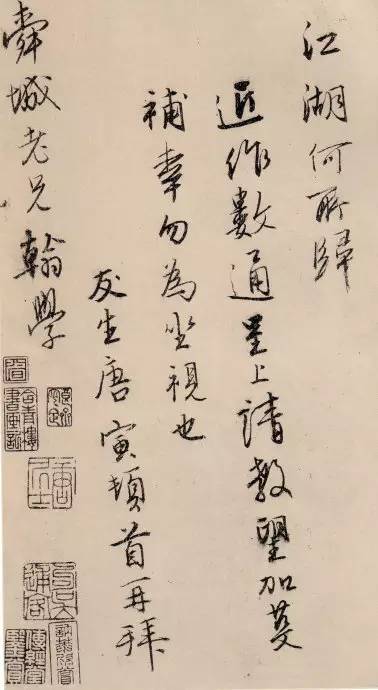 江湖何所歸
近作數通呈上請教望加荽
補幸勿為坐視也
友生唐寅頓首再拜
舜城老兄翰學